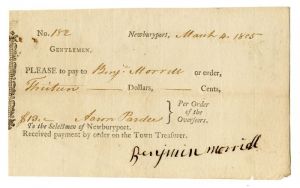 No. 182 Newburyport, March 4. 1805
GENTLEMEN,
PLEASE to pay to Benj. Morrill or order,
Thirteen Dollars, Cents,
$13.- Aaron Pardee } Per Order of the Overseers.
To the Selectmen of Newburyport.
Received payment by order on the Town Treasurer.
Benjamin Morrill